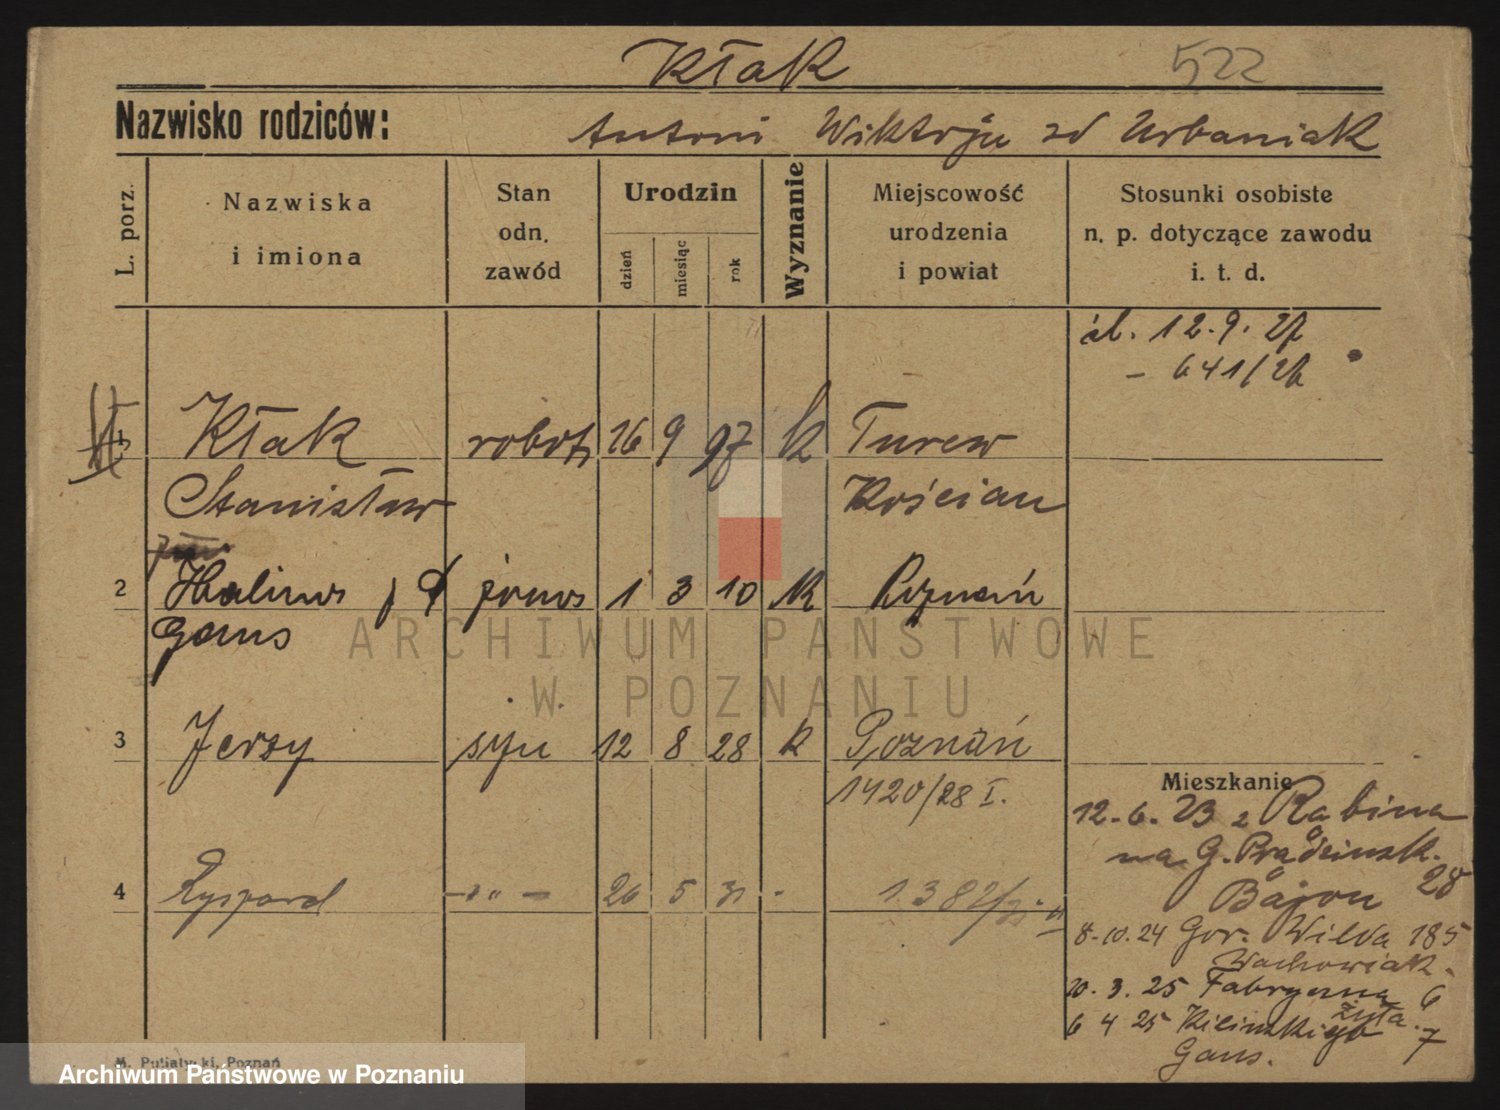 Kłak 522
Nazwisko rodziców: Antoni Wiktorja zd Urbaniak
L. porz. Nazwiska i imiona Stan odn. zawód Urodzin dzień miesiąc rok Wyznanie Miejscowość urodzenia i powiat Stosunki osobiste n. p. dotyczące zawodu i. t. d.
śl. 12.9.27
- 641/26
1 Kłak robotn 26 9 97 k Turew
Stanisław Kościan
2 Halina żona 1 3 10 k Poznań
Gans
3 Jerzy syn 12 8 28 k Poznań
1420/28 I.
Mieszkanie
12.6.23 z Rabina
na G. Prądzińsk. 28
Bajon
4 Ryszard -"- 26 5 31 - 1382/31 II
8.10.24 Gór. Wilda 185
Wachowiak.
20.3.25 Fabryczna 6
Żyta.
6 4 25 Kilińskiego 7
Gans.
M. Putiatycki, Poznań
ARCHIWUM PAŃSTWOWE
W POZNANIU
Archiwum Państwowe w Poznaniu